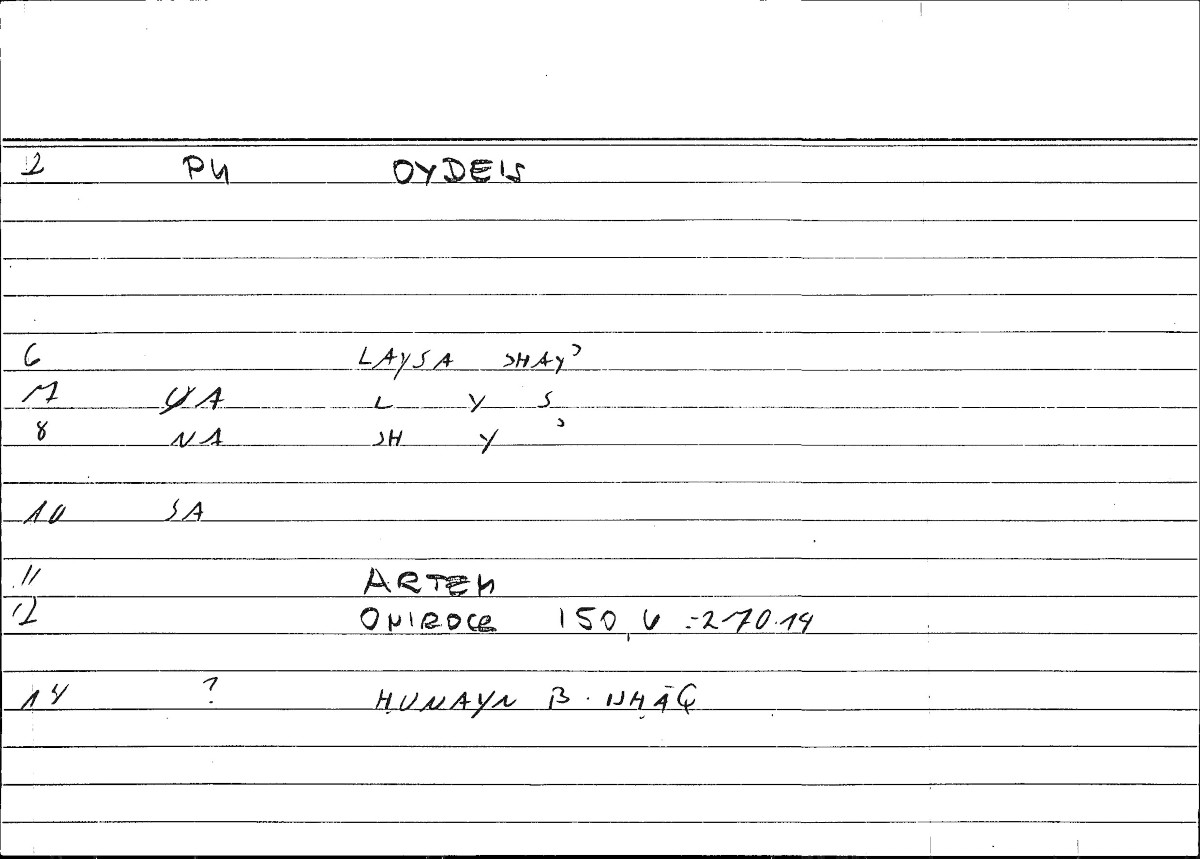 2 PU OYDEIS
6 LAYSA SHAYʾ
7 UA L Y S
8 NA SH Y ʾ
10 SA
11 ARTEM
12 ONIROCR 150,6 = 270.14
14 ? ḤUNAYN B. ISḤĀQ